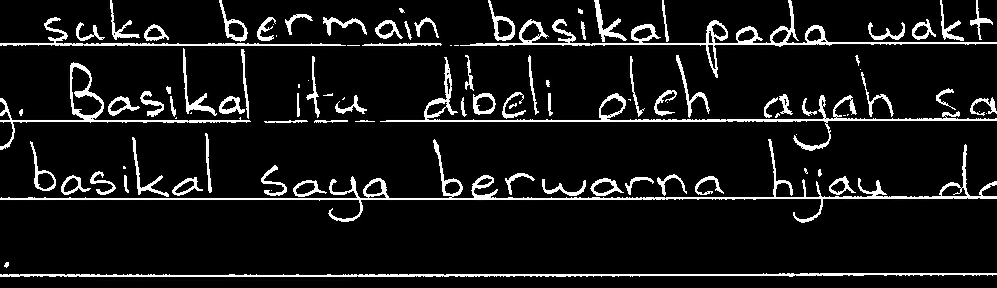 suka bermain basikal pada wakt
g. Basikal itu dibeli oleh ayah sa
basikal saya berwarna hijau da
.